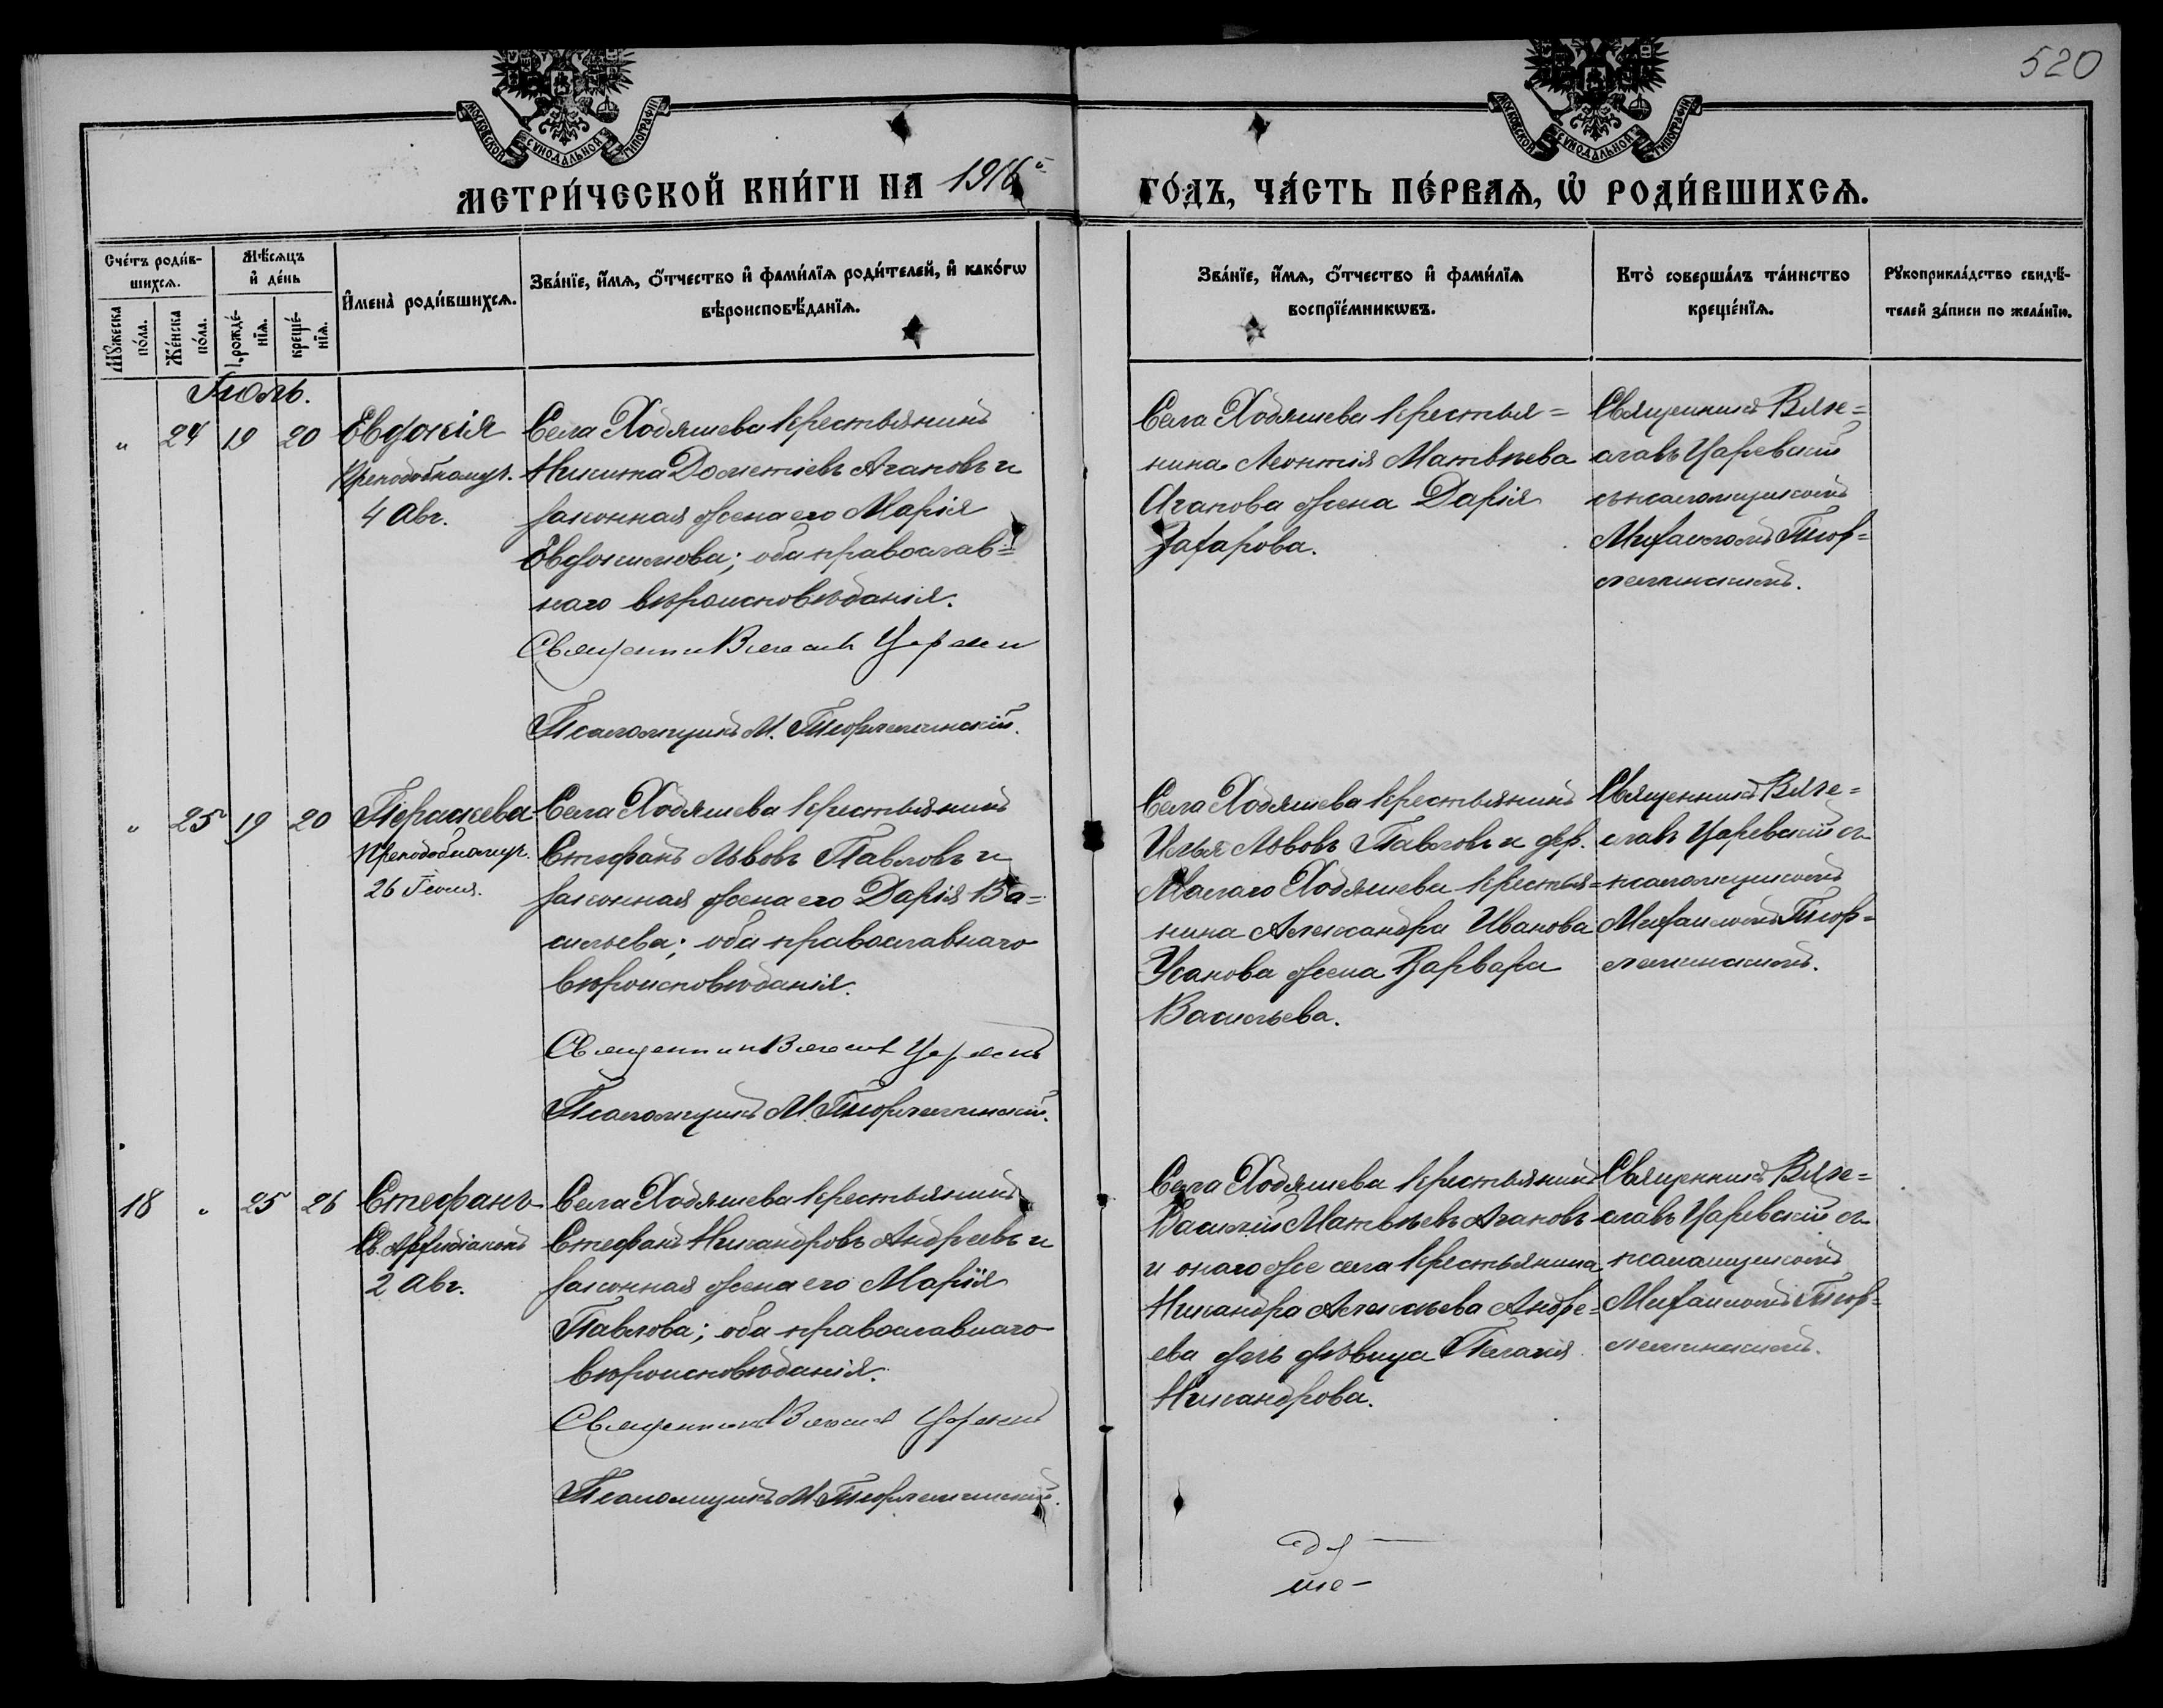 520
МОСКОВСКОЙ СѴНОДАЛЬНОЙ ТИПОГРАФІИ
МОСКОВСКОЙ СѴНОДАЛЬНОЙ ТИПОГРАФІИ
МЕТРИ́ЧЕСКОЙ КНИ́ГИ НА 1916й
ГО́ДЪ, ЧА́СТЬ ПЕ́РВАѦ, Ѡ҆ РОДИ́ВШИХСѦ.
Сче́тъ роди́в-
шихсѧ.
Мꙋ́жеска
по́ла.
Же́нска
по́ла.
Мѣ́сѧцъ
и҆ де́нь
рожде́-
нїѧ.
креще́-
нїѧ.
И҆мена̀ роди́вшихсѧ.
Зва́нїе, и҆́мѧ, о҆́тчество и҆ фами́лїѧ роди́телей, и҆ како́гѡ
вѣроисповѣ́данїѧ.
Зва́нїе, и҆́мѧ, о҆́тчество и҆ фами́лїѧ
воспрїе́мникѡвъ.
Кто̀ соверша́лъ та́инство
креще́нїѧ.
Рꙋкоприкла́дство свидѣ́-
телей за́писи по жела́нїю.
Іюль.
" 24 19 20
Евдокія
Преподобномуч.
4 Авг.
Села Ходяшева крестьянинъ
Никита Дометіевъ Агаповъ и
законная жена его Марія
Евдокимова; оба православ=
наго вѣроисповѣданія.
Священникъ Вячеславъ Царевскій
Псаломщикъ М. Тиорлеминскій.
Села Ходяшева крестья=
нина Леонтія Матвѣева
Агапова жена Дарія
Захарова.
Священникъ Вяче=
славъ Царевскій
съ псаломщикомъ
Михаиломъ Тиор=
леминскимъ.
" 25 19 20
Параскева
Преподобномуч.
26 Іюля.
Села Ходяшева крестьянинъ
Стефанъ Львовъ Павловъ и
законная жена его Дарія Ва=
сильева; оба православнаго
вѣроисповѣданія.
Священникъ Вячеславъ Царевскій
Псаломщикъ М. Тиорлеминскій.
Села Ходяшева крестьянинъ
Илья Львовъ Павловъ и дер.
Малаго Ходяшева крестья=
нина Александра Иванова
Усанова жена Варвара
Васильева.
Священникъ Вяче=
славъ Царевскій съ
псаломщикомъ
Михаиломъ Тиор=
леминскимъ.
18 " 25 26
Стефанъ
Св. Архидіаконъ
2 Авг.
Села Ходяшева крестьянинъ
Стефанъ Никандровъ Андреевъ и
законная жена его Марія
Павлова; оба православнаго
вѣроисповѣданія.
Священникъ Вячеславъ Царевскій
Псаломщикъ М. Тиорлеминскій.
Села Ходяшева крестьянинъ
Василій Матвѣевъ Агаповъ
и онаго же села крестьянина
Никандра Алексѣева Андре=
ева дочь дѣвица Пелагія
Никандрова.
Священникъ Вяче=
славъ Царевскій съ
псаломщикомъ
Михаиломъ Тиор=
леминскимъ.